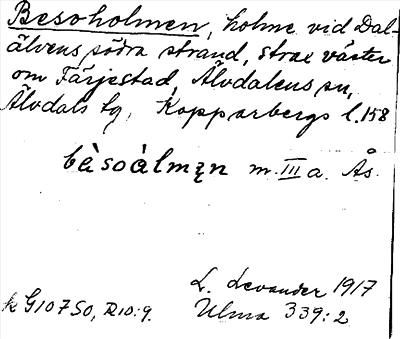 Besoholmen, holme vid Dal-
älvens södra strand, strax väster
om Färjestad, Älvdalens sn,
Älvdals tg, Kopparbergs l. 158
bàsoàlmąn m. III a. Ås.
L. Levander 1917
k G10750, R10:9. Ulma 339:2